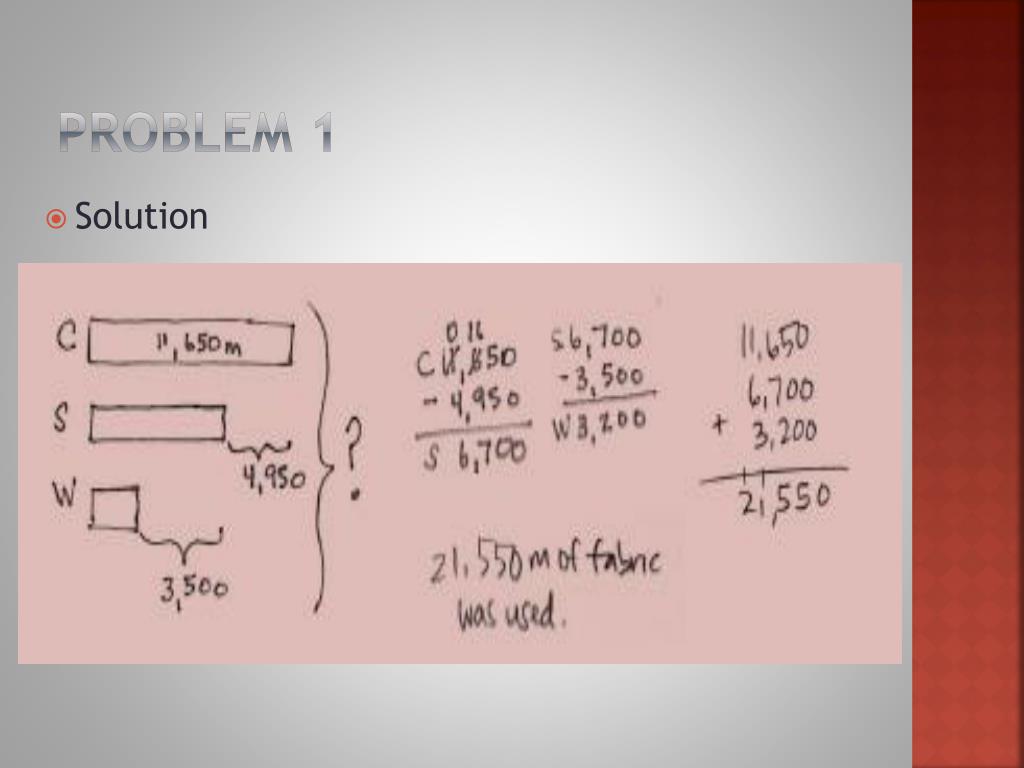 PROBLEM 1
Solution
C 11,650m
S
4,950
W
3,500
?
0 16
C 11,650
- 4,950
S 6,700
S 6,700
- 3,500
W 3,200
11,650
6,700
+ 3,200
21,550
21,550 m of fabric
was used.